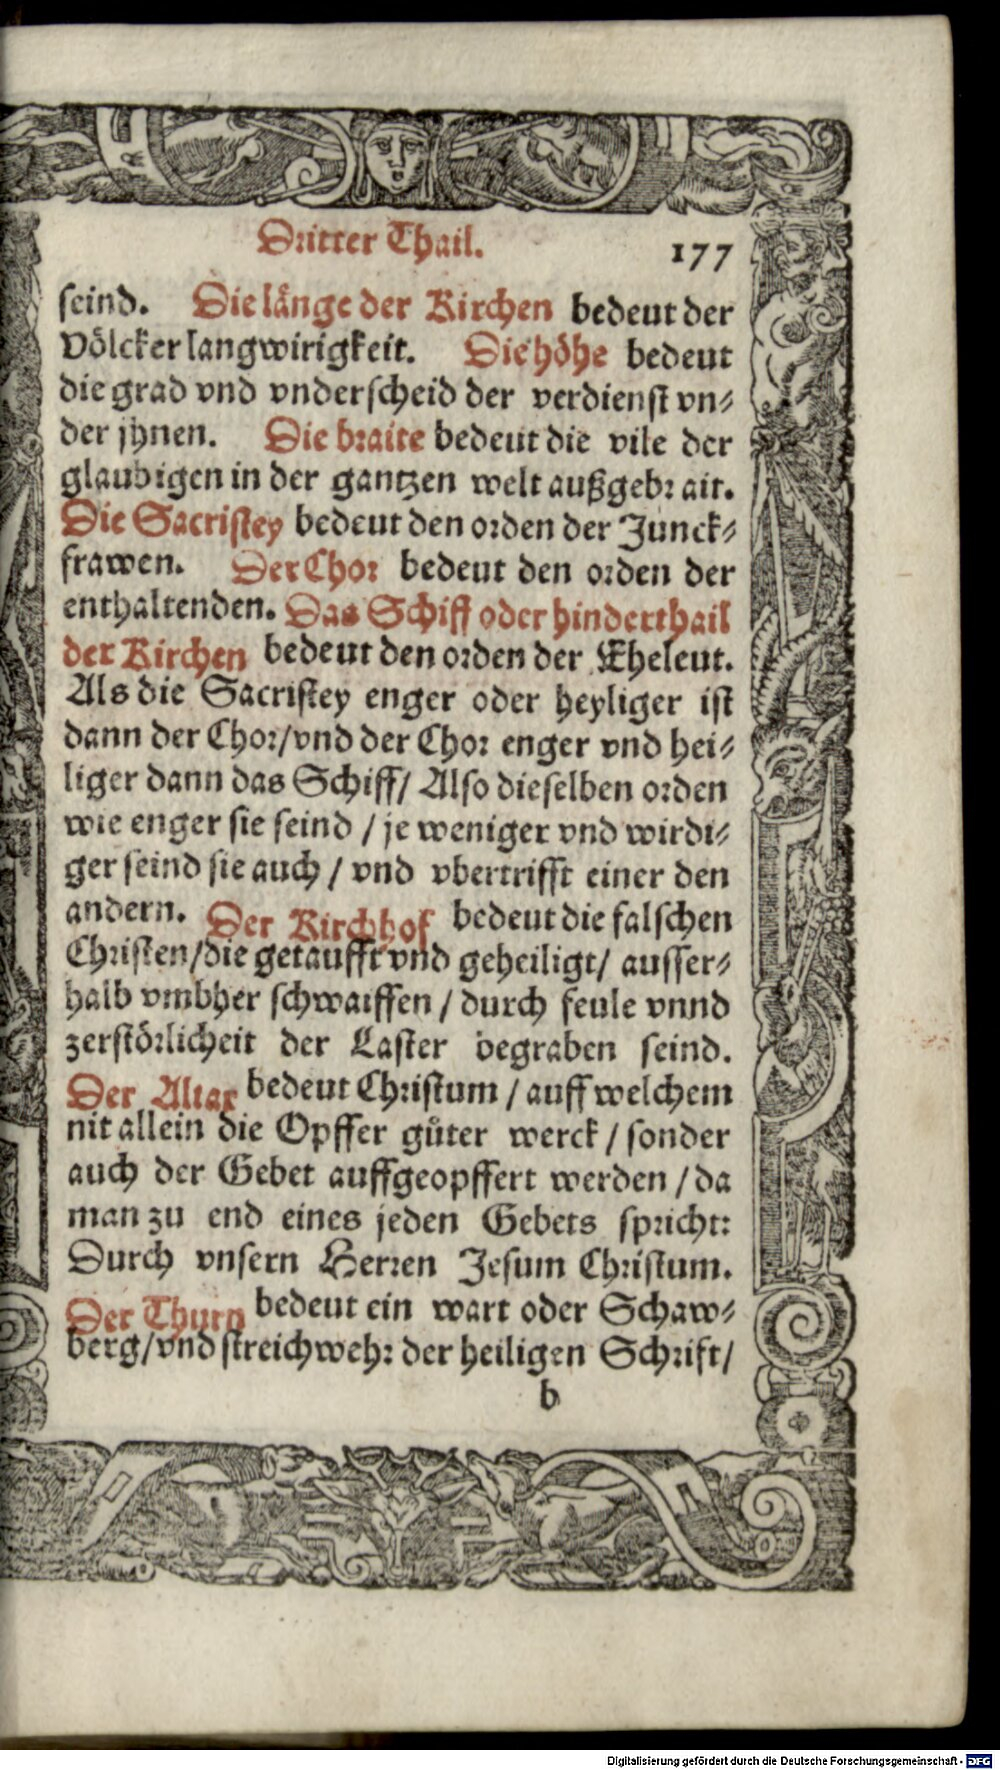 Dritter Thail. 177
seind. Die länge der Kirchen bedeut der
Völcker langwirigkeit. Die höhe bedeut
die grad vnd vnderscheid der verdienst vn⸗
der jhnen. Die braite bedeut die vile der
glaubigen in der gantzen welt außgebrait.
Die Sacristey bedeut den orden der Junck⸗
frawen. Der Chor bedeut den orden der
enthaltenden. Das Schiff oder hinderthail
der Kirchen bedeut den orden der Eheleut.
Als die Sacristey enger oder heyliger ist
dann der Chor/vnd der Chor enger vnd hei⸗
liger dann das Schiff/ Also dieselben orden
wie enger sie seind / je weniger vnd wirdi⸗
ger seind sie auch / vnd vbertrifft einer den
andern. Der Kirchhof bedeut die falschen
Christen/die getaufft vnd geheiligt/ ausser⸗
halb vmbher schwaiffen / durch feule vnnd
zerstörlicheit der Laster begraben seind.
Der Altar bedeut Christum / auff welchem
nit allein die Opffer gůter werck / sonder
auch der Gebet auffgeopffert werden / da
man zu end eines jeden Gebets spricht:
Durch vnsern Herren Jesum Christum.
Der Thurn bedeut ein wart oder Schaw⸗
berg/vnd streichwehr der heiligen Schrift/
b
Digitalisierung gefördert durch die Deutsche Forschungsgemeinschaft - DFG